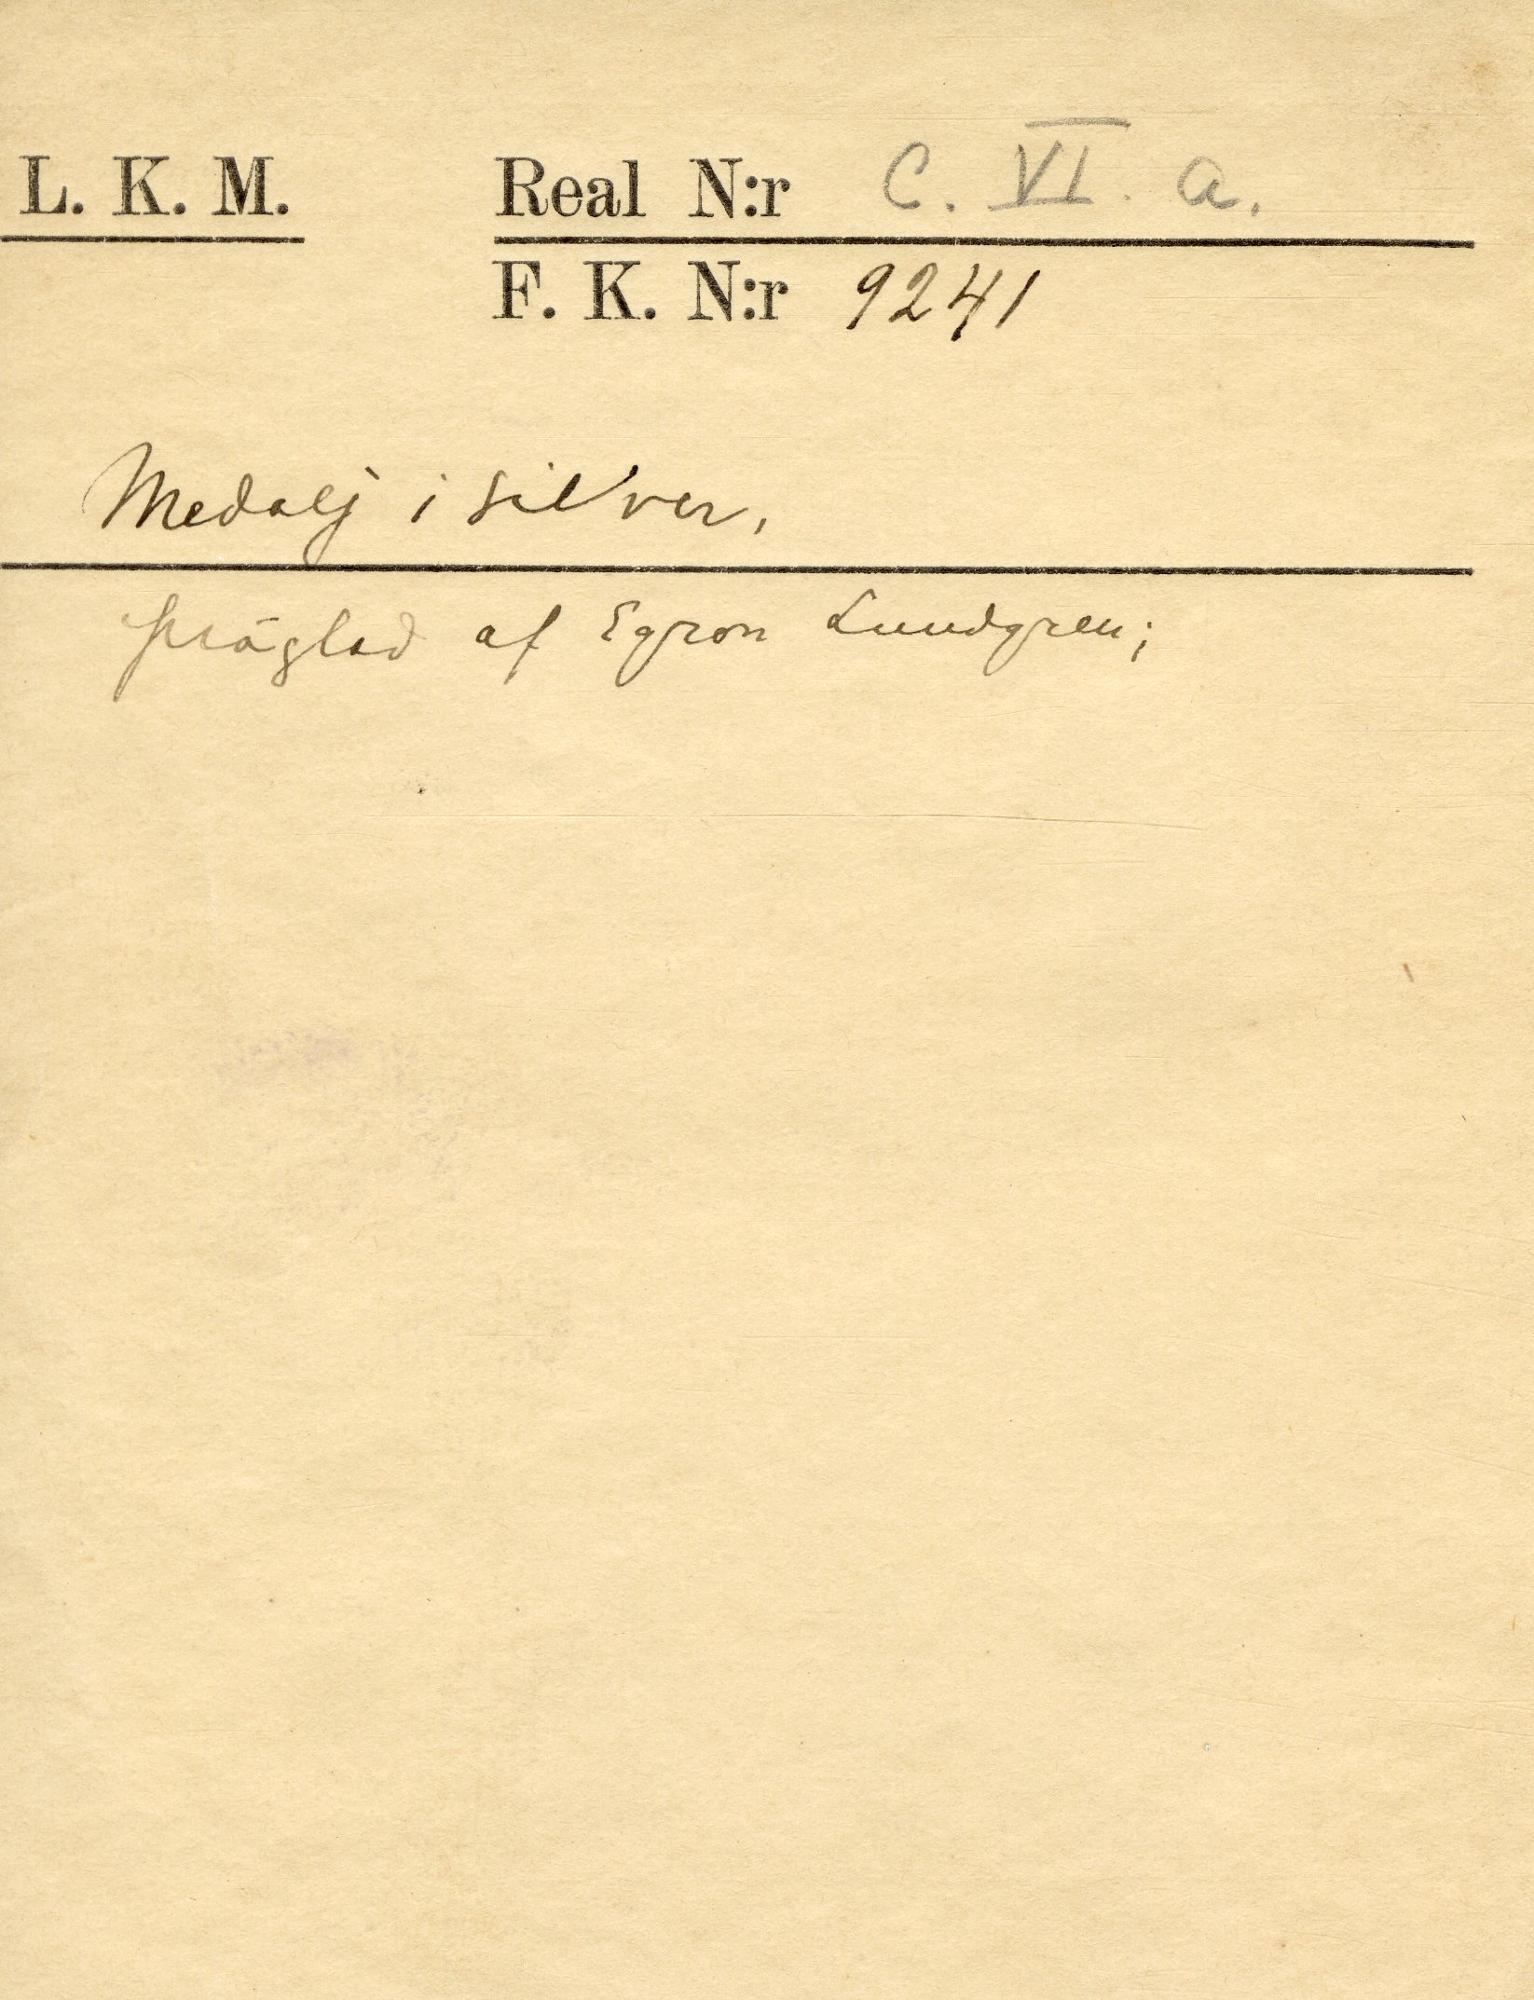 L. K. M. Real N:r C. VI. a.
F. K. N:r 9241
Medalj i silver,
präglad af Egron Lundgren;